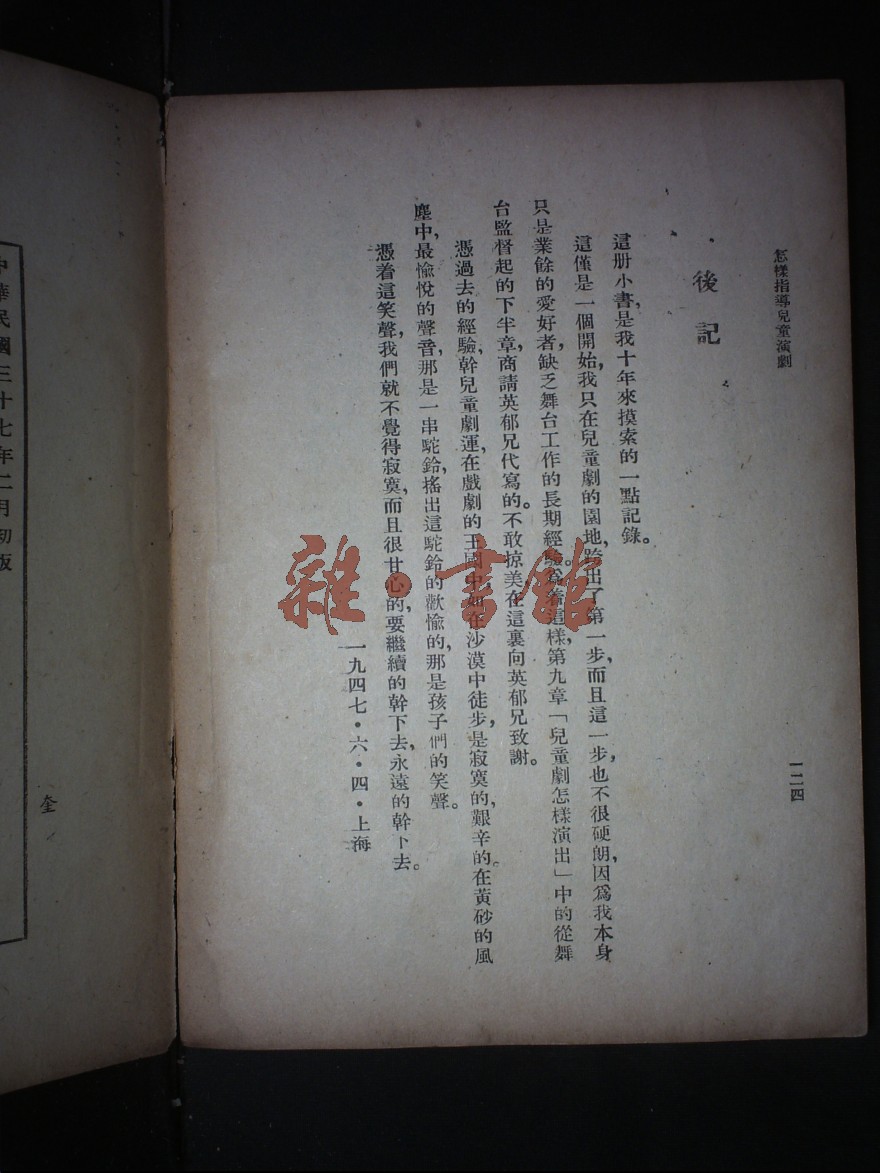 怎樣指導兒童演劇
一二四
後記
這册小書，是我十年來摸索的一點記錄。
這僅是一個開始，我只在兒童劇的園地，跨出了第一步，而且這一步，也不很硬朗，因爲我本身
只是業餘的愛好者，缺乏舞台工作的長期經驗。爲着這樣，第九章「兒童劇怎樣演出」中的從舞
台監督起的下半章，商請英郁兄代寫的。不敢掠美，在這裏向英郁兄致謝。
憑過去的經驗，幹兒童劇運，在戲劇的王國中，如在沙漠中徒步，是寂寞的，艱辛的。在黃砂的風
塵中，最愉悅的聲音，那是一串駝鈴，搖出這駝鈴的歡愉的，那是孩子們的笑聲。
憑着這笑聲，我們就不覺得寂寞，而且很甘心的，要繼續的幹下去，永遠的幹下去。
一九四七·六·四·上海
中華民國三十七年二月初版
奎
雜·書館